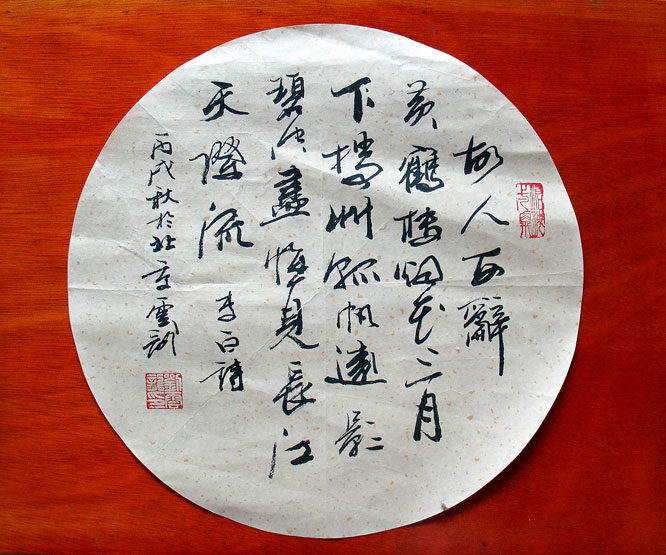 故人西辭
黃鶴樓烟花三月
下揚州孤帆遠影
碧空盡惟見長江
天際流 李白詩
丙戌秋於北京雲訓